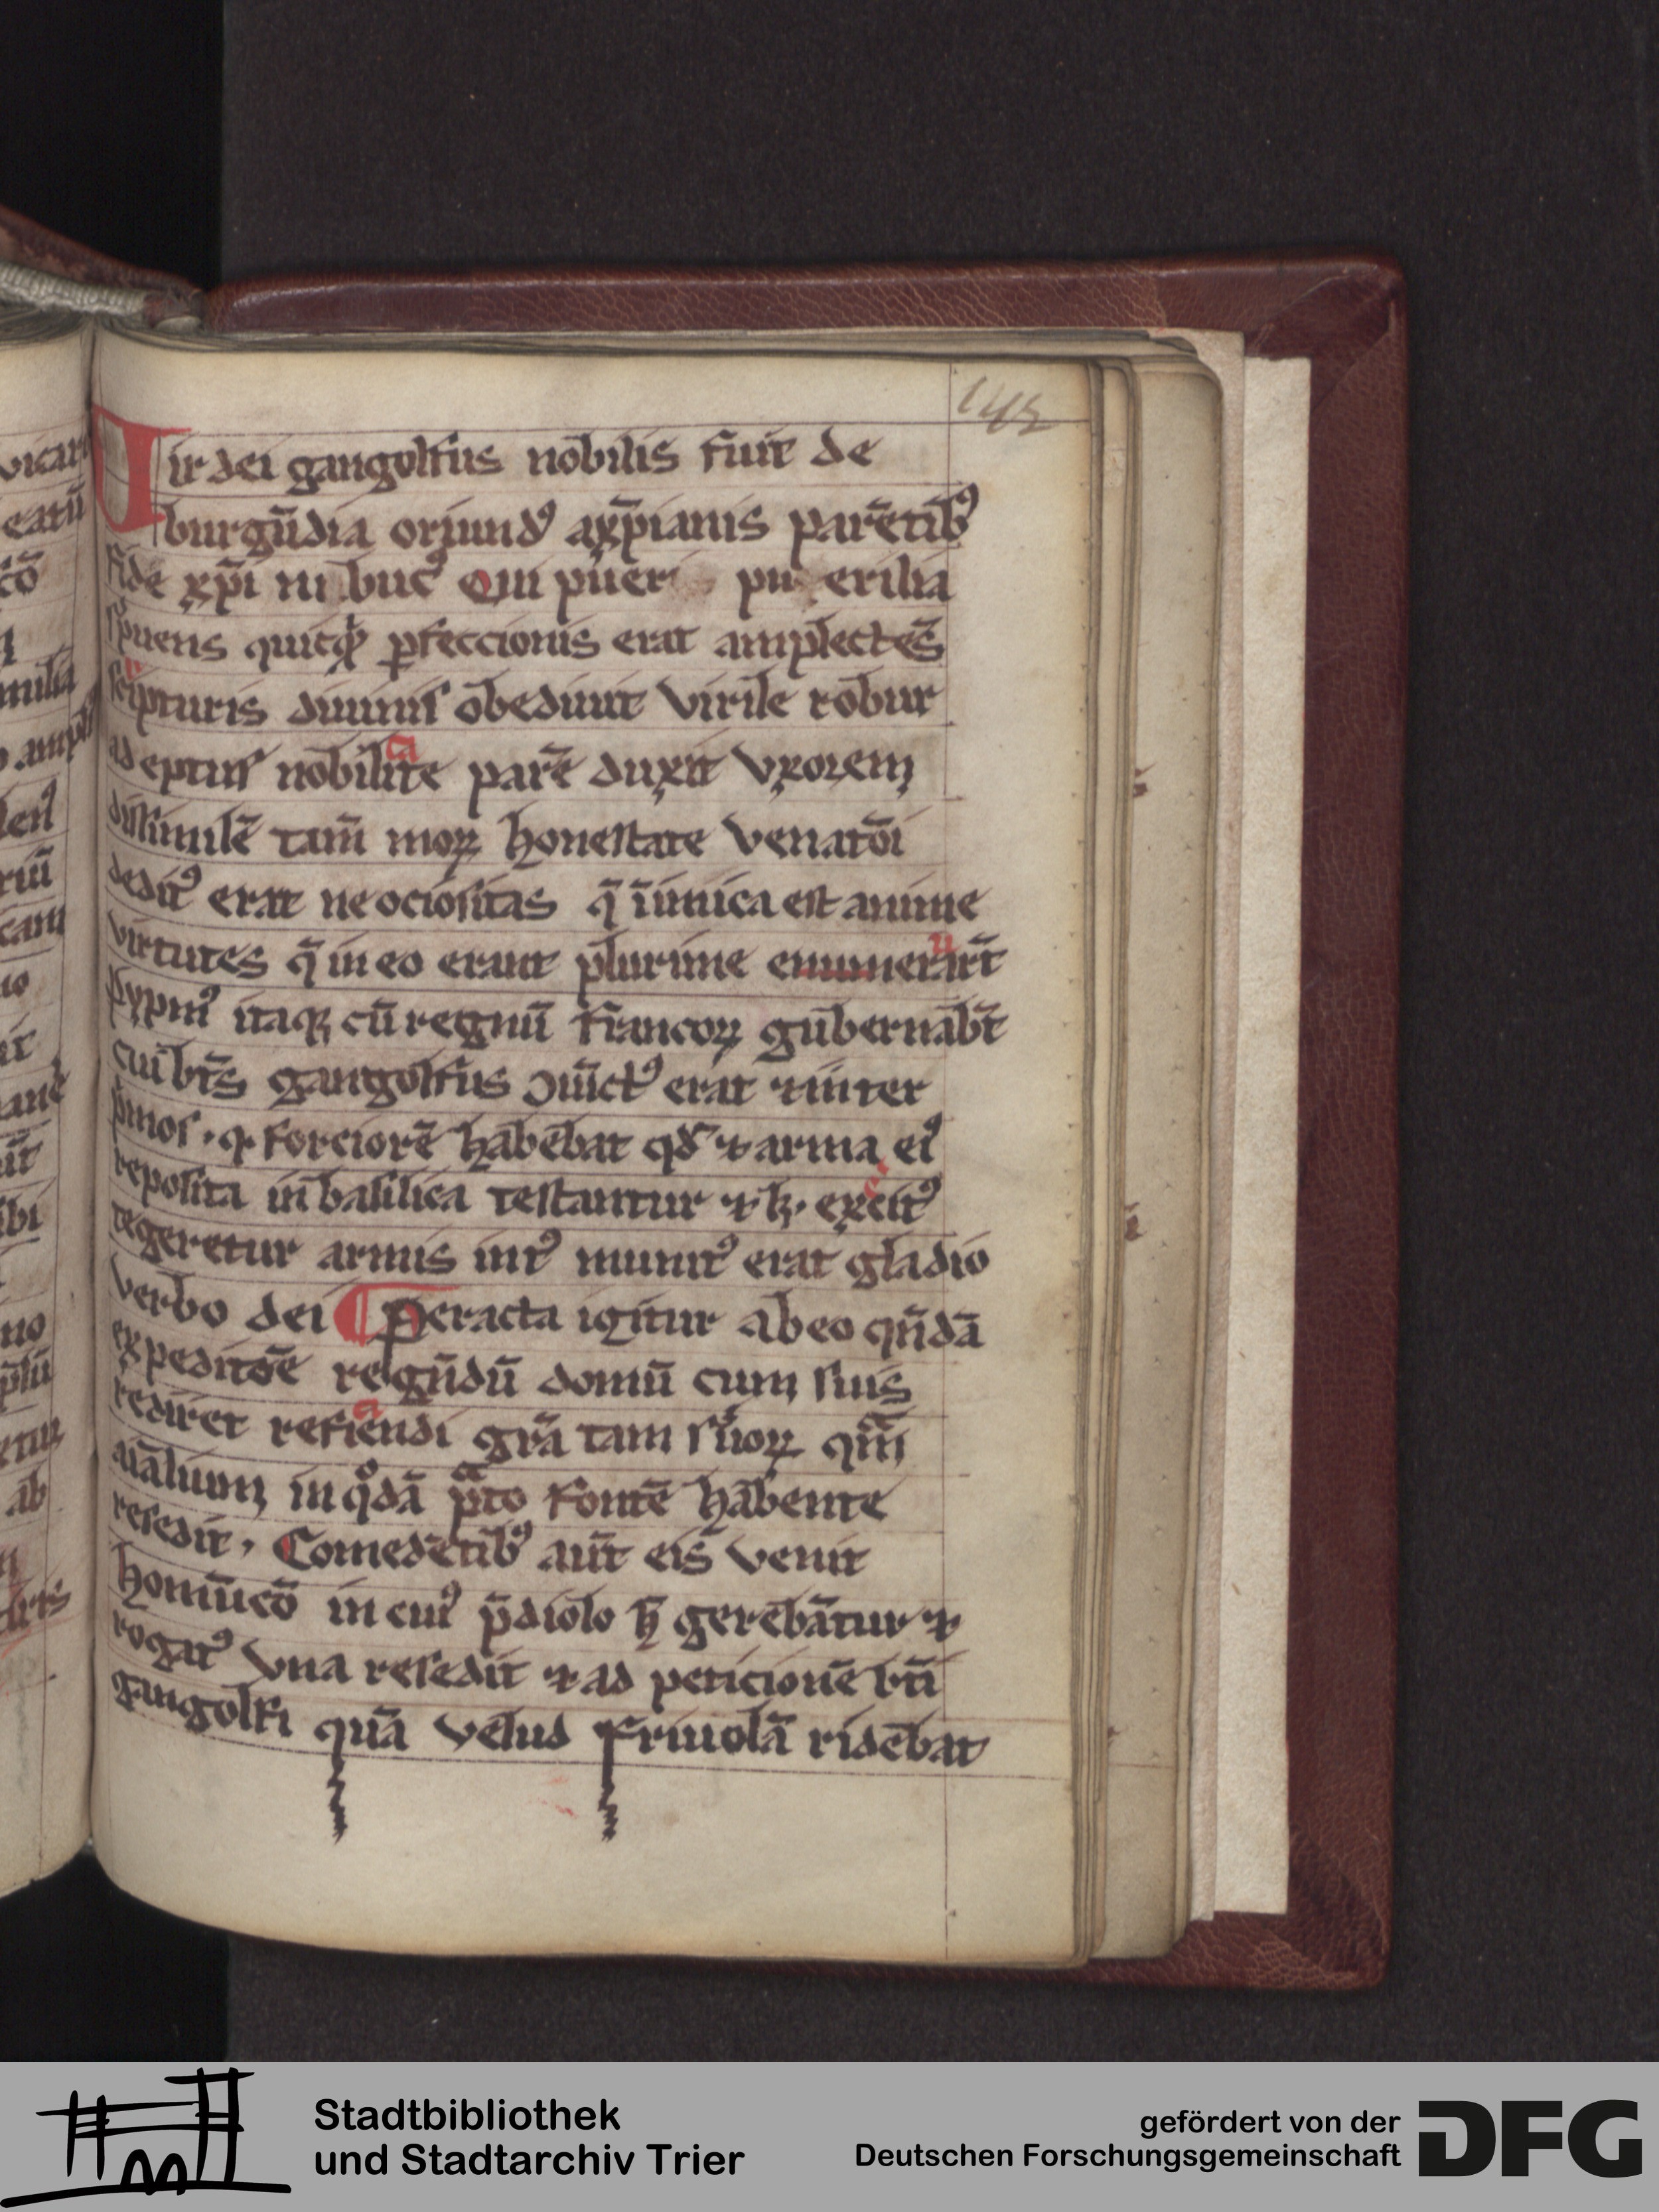 142
Vir dei gangolfus nobilis fuit de
burgūdia oriundꝰ a xp̄ianis parētibꝰ
fide xp̄i buitꝰ Qui pueri pu erilia
spuens quitqͥd ꝑfeccionis erat amplectēs
scripturis diuinis obediuit virile robur
adeptus nobilitate parē duxit vxorem
dissimilē tam̄ moꝝ honestate venatōi
deditꝰ erat ne ociositas q̄ īimica est anime
virtutes q̄ in eo erant plurime enumerarēt
pypinꝰ itaqꝫ cū regnū francoꝝ gubernabat̄
cui bt̄s gangolfus ꝯiūctꝰ erat ⁊ inter
pͥmos . ⁊ forciorē habebat qd̄ ⁊ arma eiꝰ
reposita in basilica testantur ⁊ lꝫ . exͭeitꝰ
tegeretur armis intꝰ munitꝰ erat gladio
verbo dei ¶ Peracta igitur ab eo qn̄dā
expeditōe regn̄dū domū cum suis
rediret reficiendi grā tam suoꝝ qͣm
aīalium in qͦdā pͣto fontē habente
resedit . Comedētibꝰ aūt eis venit
homūcō in cuiꝰ p̄diolo h̄ gerebātur ⁊
rogatꝰ vna resedit ⁊ ad peticionē bt̄i
gangolfi quā velud friuolā ridebat
Stadtbibliothek
und Stadtarchiv Trier
gefördert von der
Deutschen Forschungsgemeinschaft
DFG